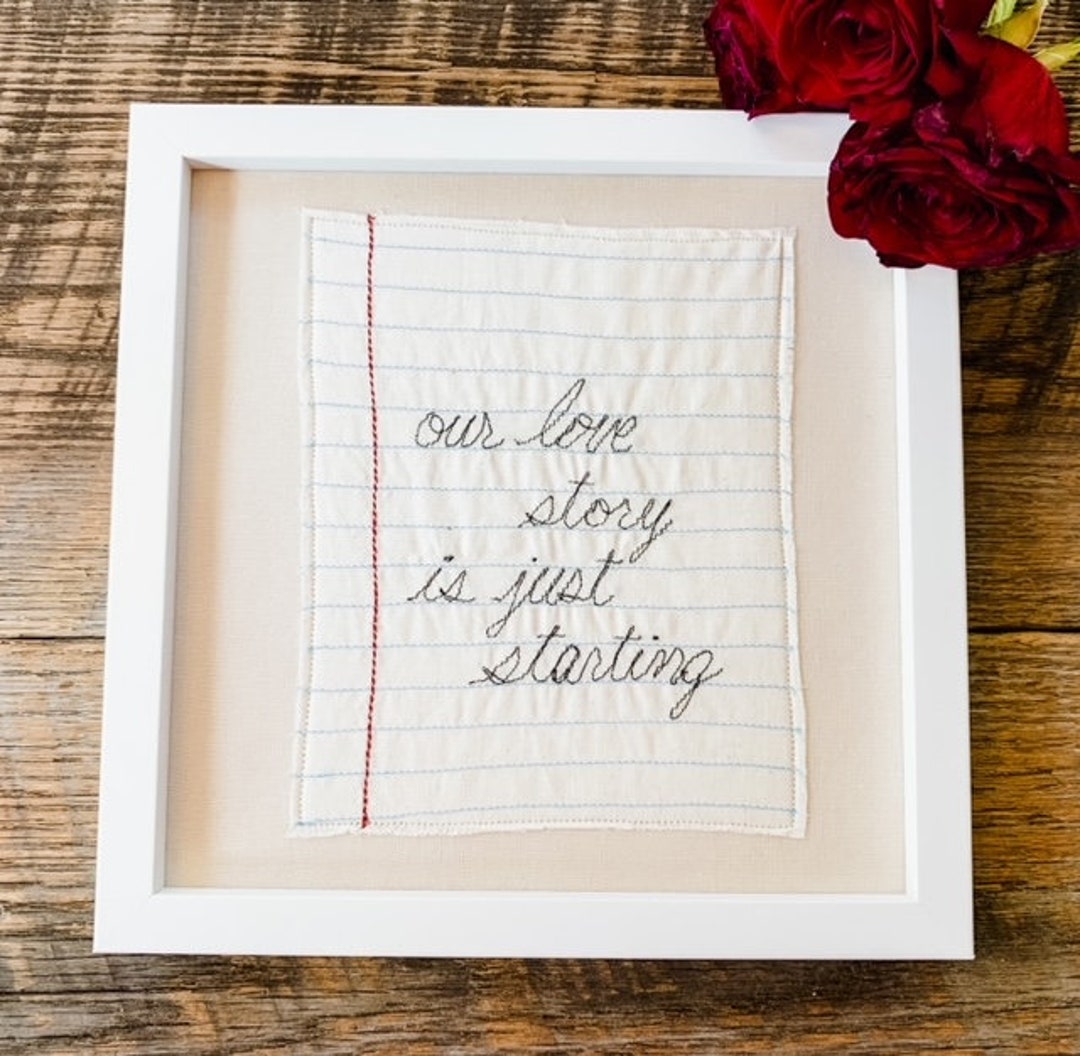 our love
story
is just
starting